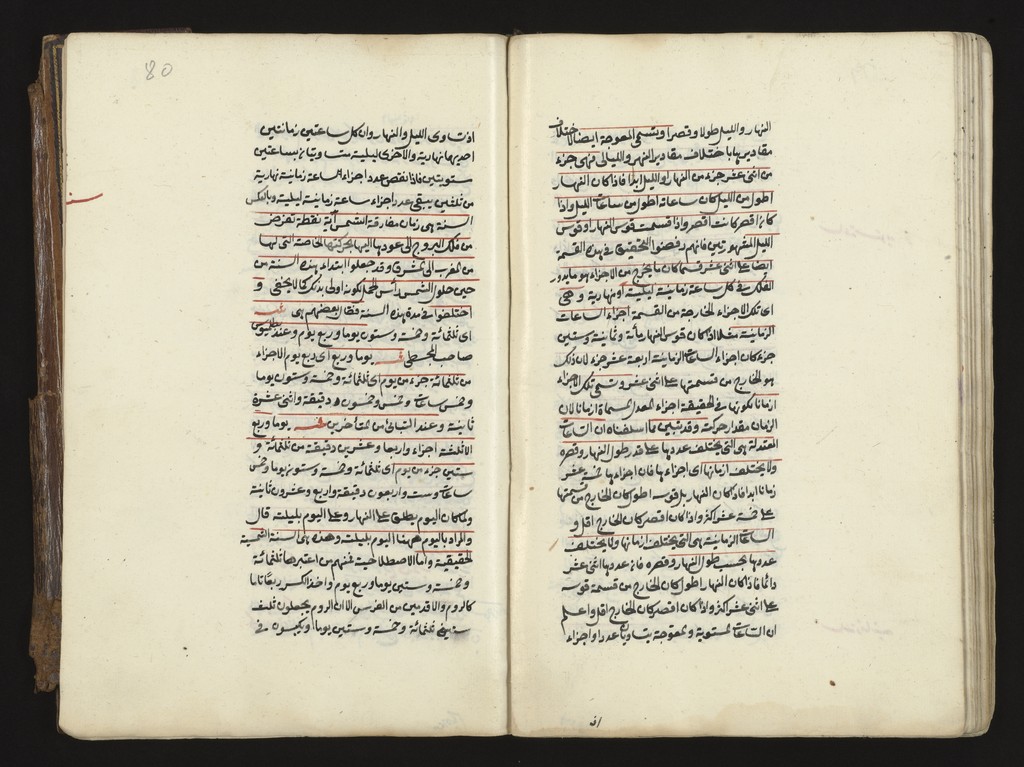 النهار والليل طولا وقصرا وتسمى المعوجة ايضا لاختلاف
مقاديرها باختلاف مقادير النهر والليالى فهى جزء
من اثنى عشر جزء من النهار او الليل ابدا فاذا كان النهار
اطول من الليل كان ساعاته اطول من ساعات الليل واذا
كان اقصر كانت اقصر واذا قسمت قوس النهار او قوس
الليل المشهورتين فانهم رفضوا التحقيق فى هذه القسمة
ايضا على اثنى عشر قسما كان ما يخرج من الاجزاء هو ما يدور
الفلك فى كل ساعة زمانية ليلية او نهارية و هى
اى تلك الاجزاء الخارجة من القسمة اجزاء الساعات
الزمانية مثلا اذا كان قوس النهار مأة وثمانية وستين
جزء كان اجزاء الساعات الزمانية اربعة عشر جزء لان ذلك
هو الخارج من قسمتها على اثنى عشر وتسمى تلك الاجزاء
ازمانا لكونها فى الحقيقة اجزاء المعدل المسماة ازمانا لان
الزمان مقدار حركته وقد تبين مما اسلفناه ان الساعات
المعتدلة هى التى يختلف عددها على قدر طول النهار وقصره
ولا يختلف ازمانها اى اجزاءها فان اجزاءها خمسة عشر
زمانا ابدا فاذا كان النهار بل قوسه اطول كان الخارج من قسمتها
على خمسة عشر اكثر واذا كان اقصر كان الخارج اقل و
الساعات الزمانية هى التى يختلف ازمانها ولا يختلف
عددها بحسب طول النهار وقصره فان عددها اثنى عشر
دائما فاذا كان النهار اطول كان الخارج من قسمة قوسه
على اثنى عشر اكثر واذا كان اقصر كان الخارج اقل واعلم
ان الساعات المستوية والمعوجة يتساويان عددا واجزاء
اذ
80
اذ تساوى الليل والنهار وان كل ساعتين زمانتين
احديهما نهارية والاخرى ليلية متساويتان بساعتين
مستويتين فاذا نقص عدد اجزاء الساعة زمانية نهارية
من ثلثين يبقى عدد اجزاء ساعة زمانية ليلية وبالعكس
السنة هى زمان مفارقة الشمس اية نقطة تفرض
من فلك البروج الى عودها اليها بحركتها الخاصة التى لها
من المغرب الى المشرق وقد جعلوا ابتداء هذه السنة من
حين حلول الشمس رأس الحمل لكونه اولى بذلك كما لا يخفى و
اختلفوا فى مدة هذه السنة فقال بعضهم هى
اى ثلثمائة وخمسة وستون يوما وربع يوم وعند بطلميوس
صاحب المجسطى يوما وربع اى ربع يوم الا جزاء
من ثلثمائة جزء من يوم اى ثلثمائة وخمسة وستون يوما
وخمس ساعات وخمس وخمسون دقيقة واثنى عشرة
ثانية وعند التبانى من المتأخرين يوما وربع
الا ثلثة اجزاء واربعا وعشرين دقيقة من ثلثمائة و
ستين جزء من يوم اى ثلثمائة وخمسة وستون يوما وخمس
ساعات وست واربعون دقيقة واربع وعشرون ثانية
ولما كان اليوم يطلق على النهار وعلى اليوم بليلته قال
والمراد باليوم ههنا اليوم بليلته وهذه هى السنة الشمسية
الحقيقية واما الاصطلاحية فمنهم من اعتبرها ثلثمائة
وخمسة وستين يوما وربع يوم واخذ الكسر ربعا تاما
كالروم والاقدمين من الفرس الا ان الروم يجعلون ثلث
سنين ثلثمائة وخمسة وستين يوما ويكبسون فى